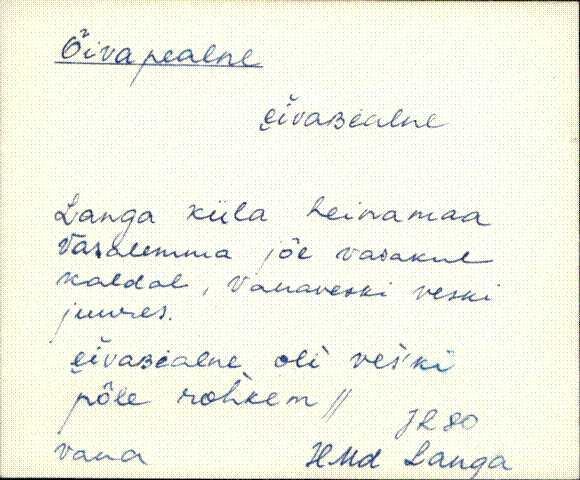 Õivapealne
e̮ivaʙealne
Langa küla heinamaa
Vasalemma jõe vasakul
kaldal, Vanaveski veski
juures.
e̮ivaʙealne oli veski
põle rohkem //
JR 80
vana HMd Langa